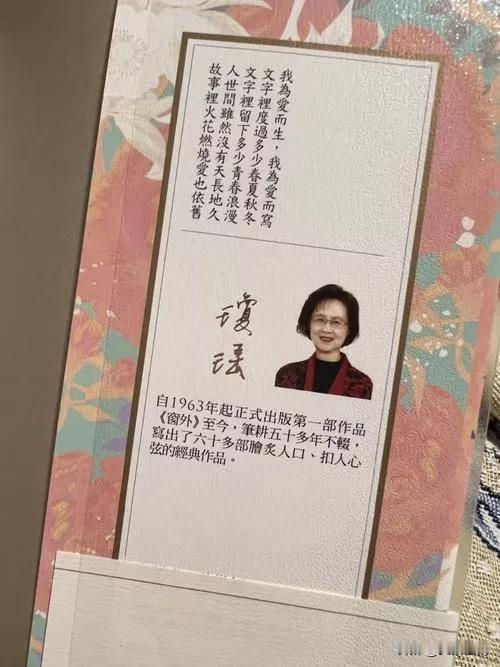 我為愛而生，我為愛而寫
文字裡度過多少春夏秋冬
文字裡留下多少青春浪漫
人世間雖然沒有天長地久
故事裡火花燃燒愛也依舊
瓊瑤
自1963年起正式出版第一部作品
《窗外》至今，筆耕五十多年不輟，
寫出了六十多部膾炙人口、扣人心
弦的經典作品。